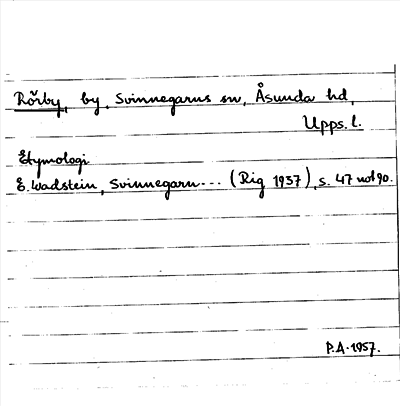 Rörby, by, Svinnegarns sn, Åsunda hd,
Upps. l.
Etymologi
E. Wadstein, Svinnegarn... (Rig 1937), s. 47 not 90.
P.A. 1957.